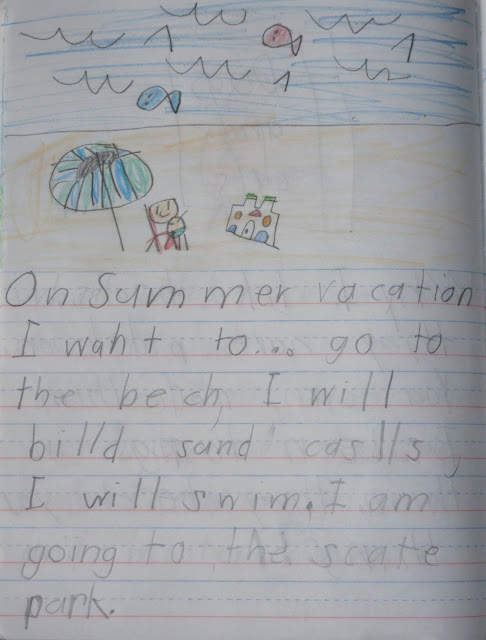 On Summer vacation
I waht to... go to
the bech, I will
billd sand caslls,
I will snim. I am
going to the scate
park.